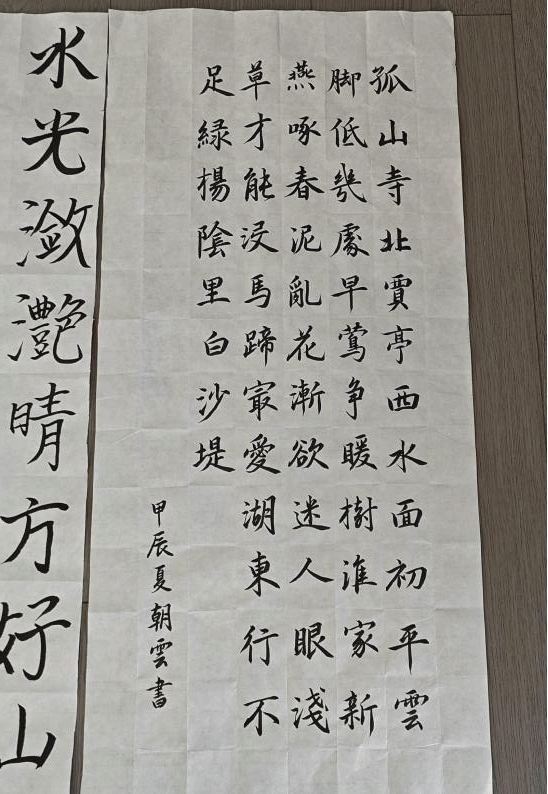 孤山寺北賈亭西水面初平雲
脚低幾處早鶯争暖樹誰家新
燕啄春泥亂花漸欲迷人眼淺
草才能沒馬蹄冣愛湖東行不
足緑楊陰里白沙堤
甲辰夏朝雲書
水光瀲灧晴方好山